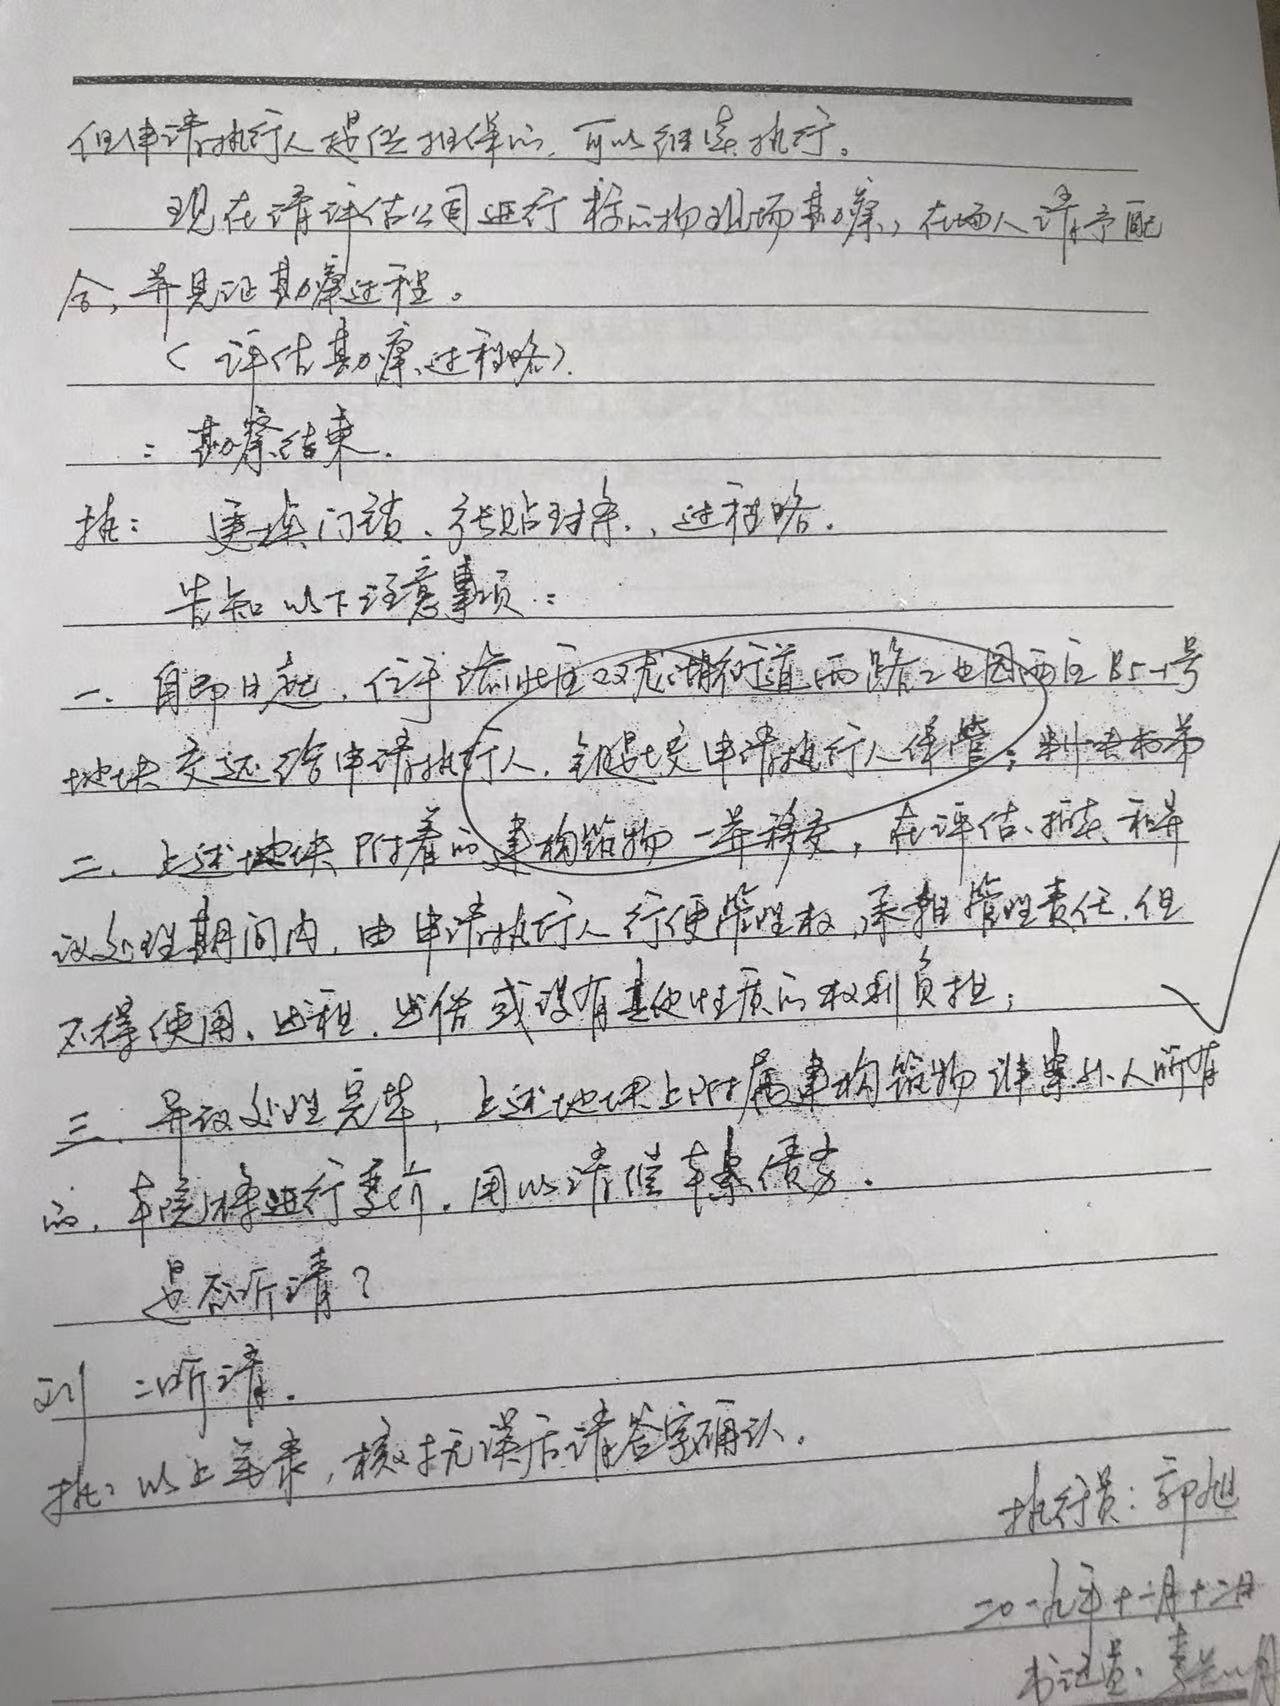 但申请执行人提供担保的，可以继续执行。
现在请评估公司进行标的物现场勘察，在场人请予配
合，并见证勘察过程。
（评估勘察过程略）.
：勘察结束.
执：更换门锁、张贴封条，过程略。
告知以下注意事项：
一、自即日起，位于淮北区双龙湖街道西路工业园西区B5-1号
地块交还给申请执行人，钥匙交申请执行人保管；
二、上述地块附着的建构筑物一并移交，在评估、拍卖和异
议处理期间内，由申请执行人行使管理权，承担管理责任，但
不得使用、出租、出借或设有其他性质的权利负担；
三、异议处理完毕，上述地块上附属建构筑物非案外人所有
的，本院将进行变价，用以清偿本案债务。
是否听清？
刘：听清.
执：以上笔录，核对无误后请签字确认。
执行员：郭旭
二〇一九年十二月十二日
书记员：李